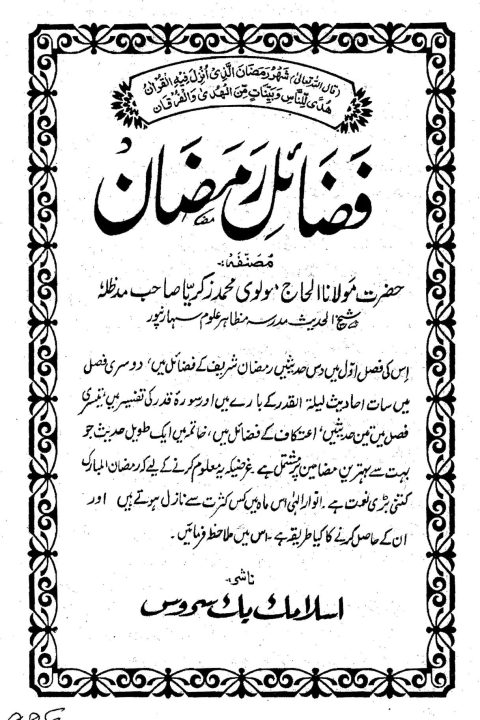 (قال اللہ تعالیٰ) شَهْرُ رَمَضَانَ الَّذِیْ اُنْزِلَ فِیْهِ الْقُرْاٰنُ
هُدًى لِّلنَّاسِ وَبَيِّنَاتٍ مِّنَ الْهُدٰى وَالْفُرْقَانِ
فَضَائِلِ رَمَضَان
مصنفہ:
حضرت مولانا الحاج مولوی محمد زکریا صاحب مدظلہٗ
شیخ الحدیث مدرسہ مظاہر علوم سہارنپور
اس کی فصل اوّل میں دس حدیثیں رمضان شریف کے فضائل میں، دوسری فصل
میں سات احادیث لیلۃ القدر کے بارے میں اور سورۂ قدر کی تفسیر میں، تیسری
فصل میں تین حدیثیں، اعتکاف کے فضائل میں، خاتمہ میں ایک طویل حدیث جو
بہت سے بہترین مضامین پر مشتمل ہے۔ غرضیکہ یہ معلوم کرنے کے لیے کہ رمضان المبارک
کتنی بڑی نعمت ہے۔ انوار الٰہی اس ماہ میں کس کثرت سے نازل ہوتے ہیں اور
ان کے حاصل کرنے کا کیا طریقہ ہے۔ اس میں ملاحظہ فرمائیں۔
ناشر
اسلامک بک سروس